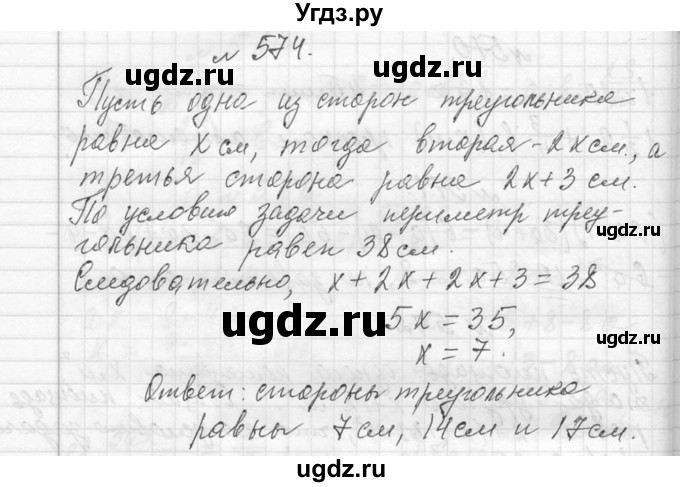 Угдз.ру
№ 574.
ugdz.ru ugdz.ru
Пусть одна из сторон треугольника
равна x см, тогда вторая - 2x см., а
третья сторона равна 2x+3 см.
ugdz.ru
По условию задачи периметр треу-
гольника равен 38 см.
ugdz.ru
Следовательно, x+2x+2x+3=38
ugdz.ru ugdz.ru
5x=35,
x=7.
Ответ: стороны треугольника
ugdz.ru
равны 7см, 14см и 17см.
ugdz.ru